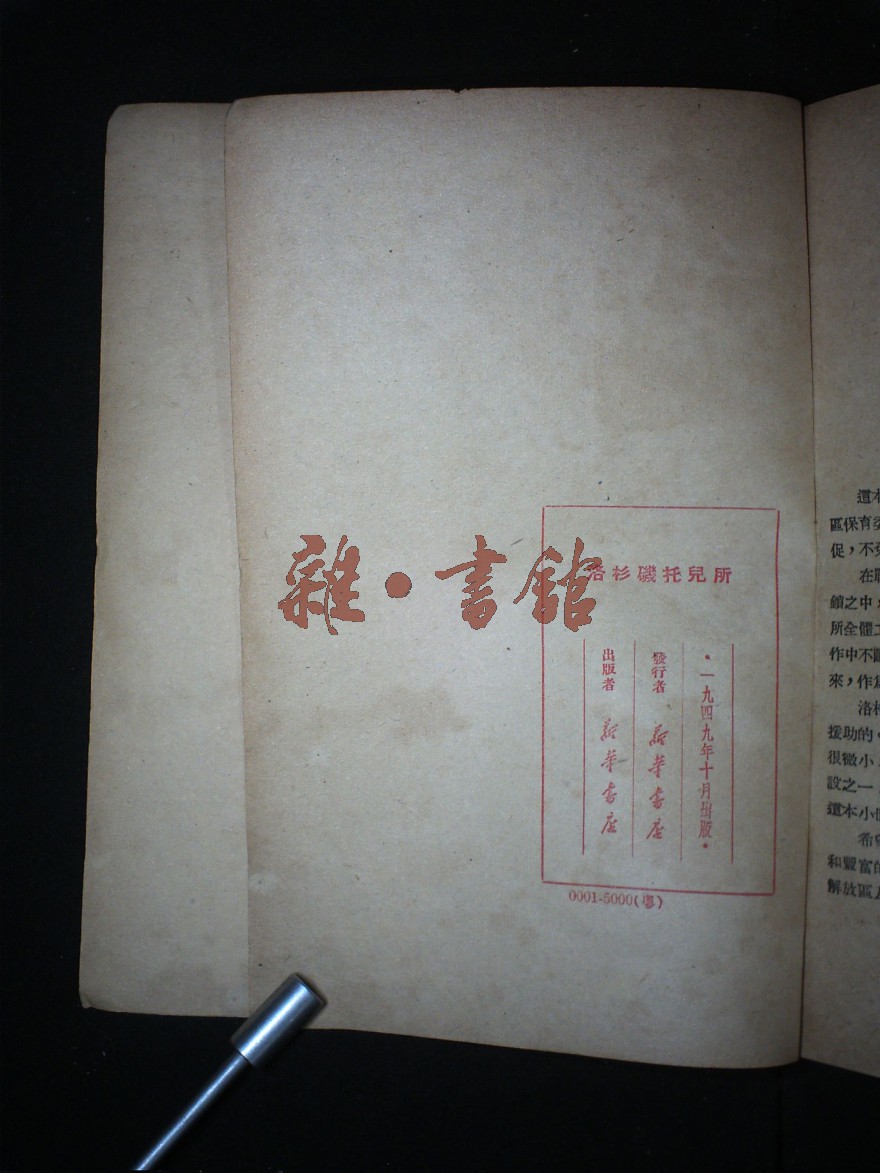 雜・書館
洛杉磯托兒所
・一九四九年十月出版・
發行者 新華書店
出版者 新華書店
0001-5000
這本
區保育
促，不
在
鎖之中
所全體
作中不
來，作
洛
援助的
很微小
設之一
這本小
希
和豐富的
解放區